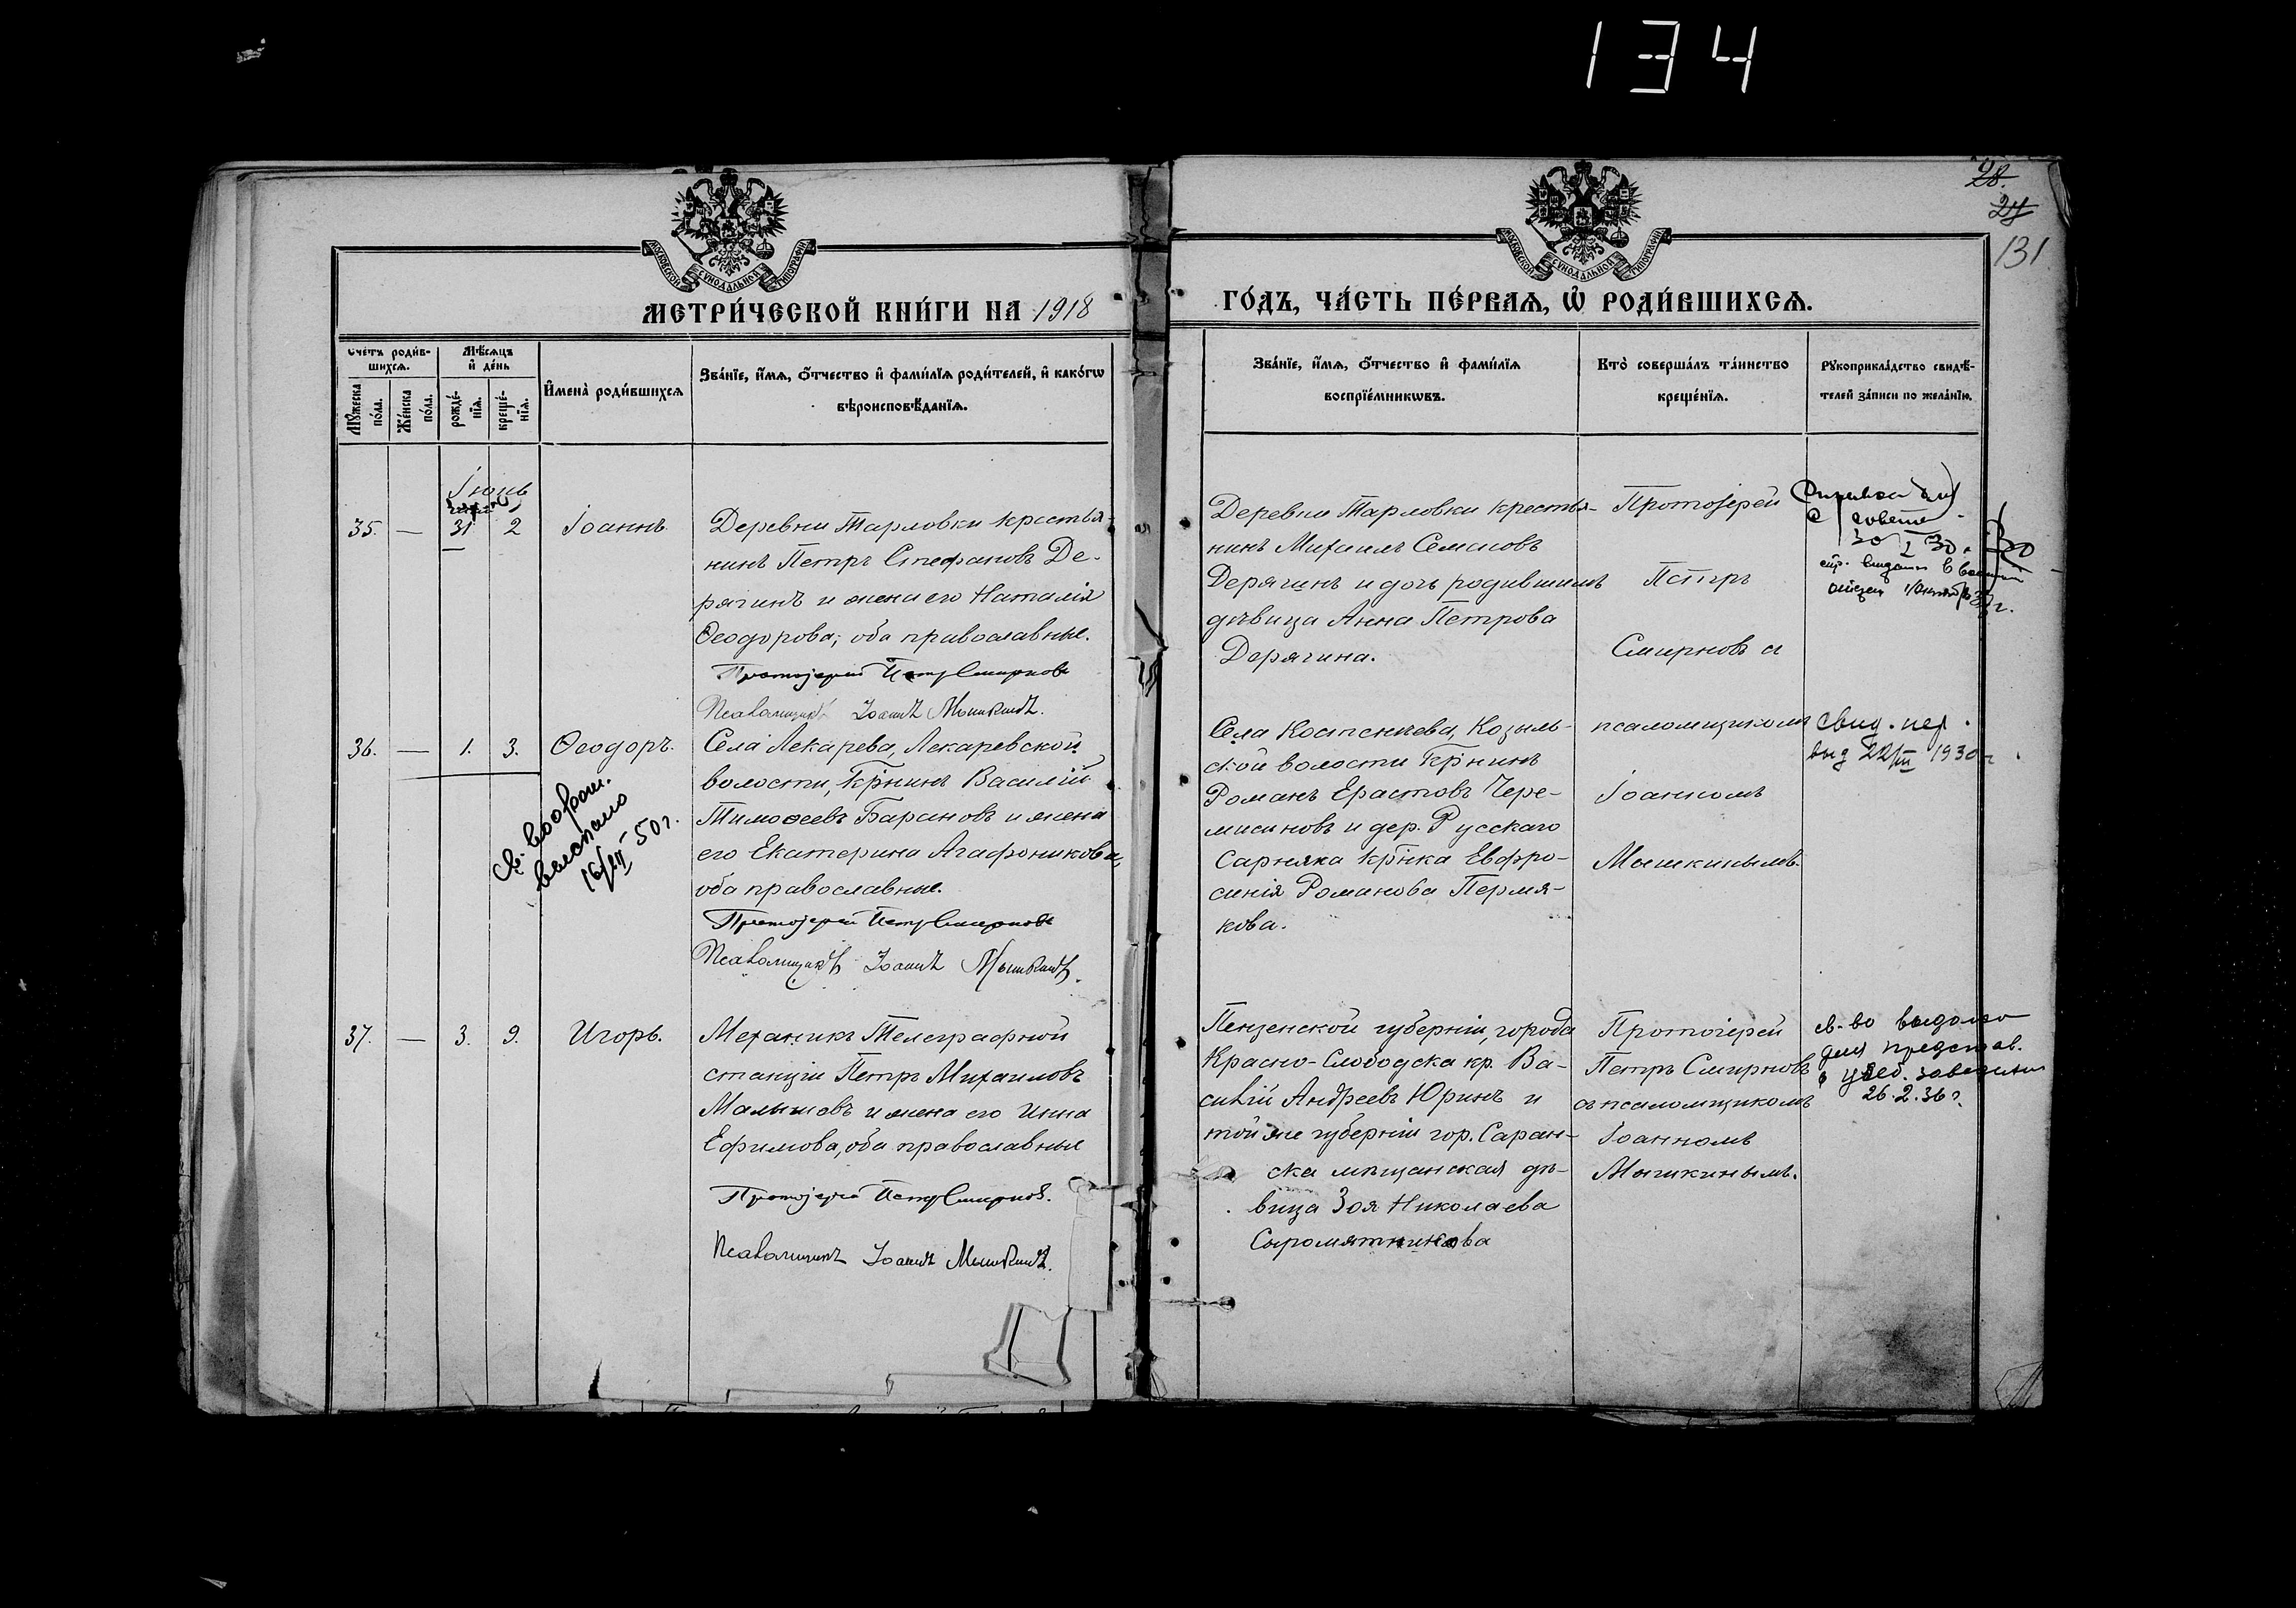 134
28.
24
131
МОСКОВСКОЙ СѴНОДАЛЬНОЙ ТИПОГРАФІИ
МОСКОВСКОЙ СѴНОДАЛЬНОЙ ТИПОГРАФІИ
МЕТРИ́ЧЕСКОЙ КНИ́ГИ НА 1918
ГО́ДЪ, ЧА́СТЬ ПЕ́РВАѦ, Ѡ҆ РОДИ́ВШИХСѦ.
Сче́тъ роди́в-
шихсѧ.
Мꙋ́жеска по́ла.
Же́нска по́ла.
Мѣ́сѧцъ
и҆ де́нь
рожде́-
нїѧ.
креще́-
нїѧ.
И҆мена̀ роди́вшихсѧ
Зва́нїе, и҆́мѧ, ѻ҆́тчество и҆ фами́лїѧ роди́телей, и҆ како́гѡ
вѣроисповѣ́данїѧ.
Зва́нїе, и҆́мѧ, ѻ҆́тчество и҆ фами́лїѧ
воспрїе́мникѡвъ.
Кто̀ соверша́лъ та́инство
креще́нїѧ.
Рꙋкоприкла́дство свидѣ́-
телей за́писи по жела́нїю.
Іюнь
35. — 31 2 Іоаннъ
Деревни Тарловки крестья-
нинъ Петръ Стефановъ Де-
рягинъ и жена его Наталія
Ѳеодорова; оба православные.
Протоіерей Петръ Смирновъ
Псаломщикъ Іоаннъ Мышкинъ.
Деревни Тарловки крестья-
нинъ Михаилъ Семеновъ
Дерягинъ и дочь родившимъ
дѣвица Анна Петрова
Дерягина.
Протоіерей
Петръ
Смирновъ с
30 I 30.
36. — 1. 3. Ѳеодоръ.
Села Лекарева, Лекаревской
волости, кр̃нинъ Василій
Тимоѳеевъ Барановъ и жена
его Екатерина Агафоникова,
оба православные.
Протоіерей Петръ Смирновъ
Псаломщикъ Іоаннъ Мышкинъ.
16/III 50 г.
Села Костенеева, Козыль-
ской волости кр̃нинъ
Романъ Ерастовъ Чере-
мисиновъ и дер. Русскаго
Сарняка кр̃нка Евфро-
синія Романова Пермя-
кова.
псаломщикомъ
Іоанномъ
Мышкинымъ.
свид. пер.
выд 22/III 1930 г.
37. — 3. 9. Игорь.
Механикъ Телеграфной
станціи Петръ Михаиловъ
Малышовъ и жена его Инна
Ефимова, оба православные
Протоіерей Петръ Смирновъ.
Псаломщикъ Іоаннъ Мышкинъ.
Пензенской губерніи, города
Красно-Слободска кр. Ва-
силій Андреевъ Юринъ и
той же губерніи гор. Саран-
ска мѣщанская дѣ-
вица Зоя Николаева
Сыромятникова
Протоіерей
Петръ Смирновъ
съ псаломщикомъ
Іоанномъ
Мышкинымъ.
св-во выдано
для представ.
в учеб. заведения
26.2.36 г.